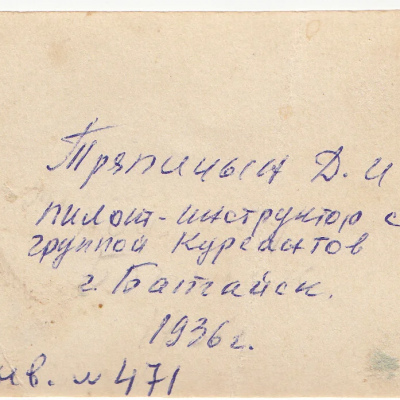 Тряпицын Д. И
пилот-инструктор с
группой курсантов
г. Батайск.
1936 г.
нв. № 471